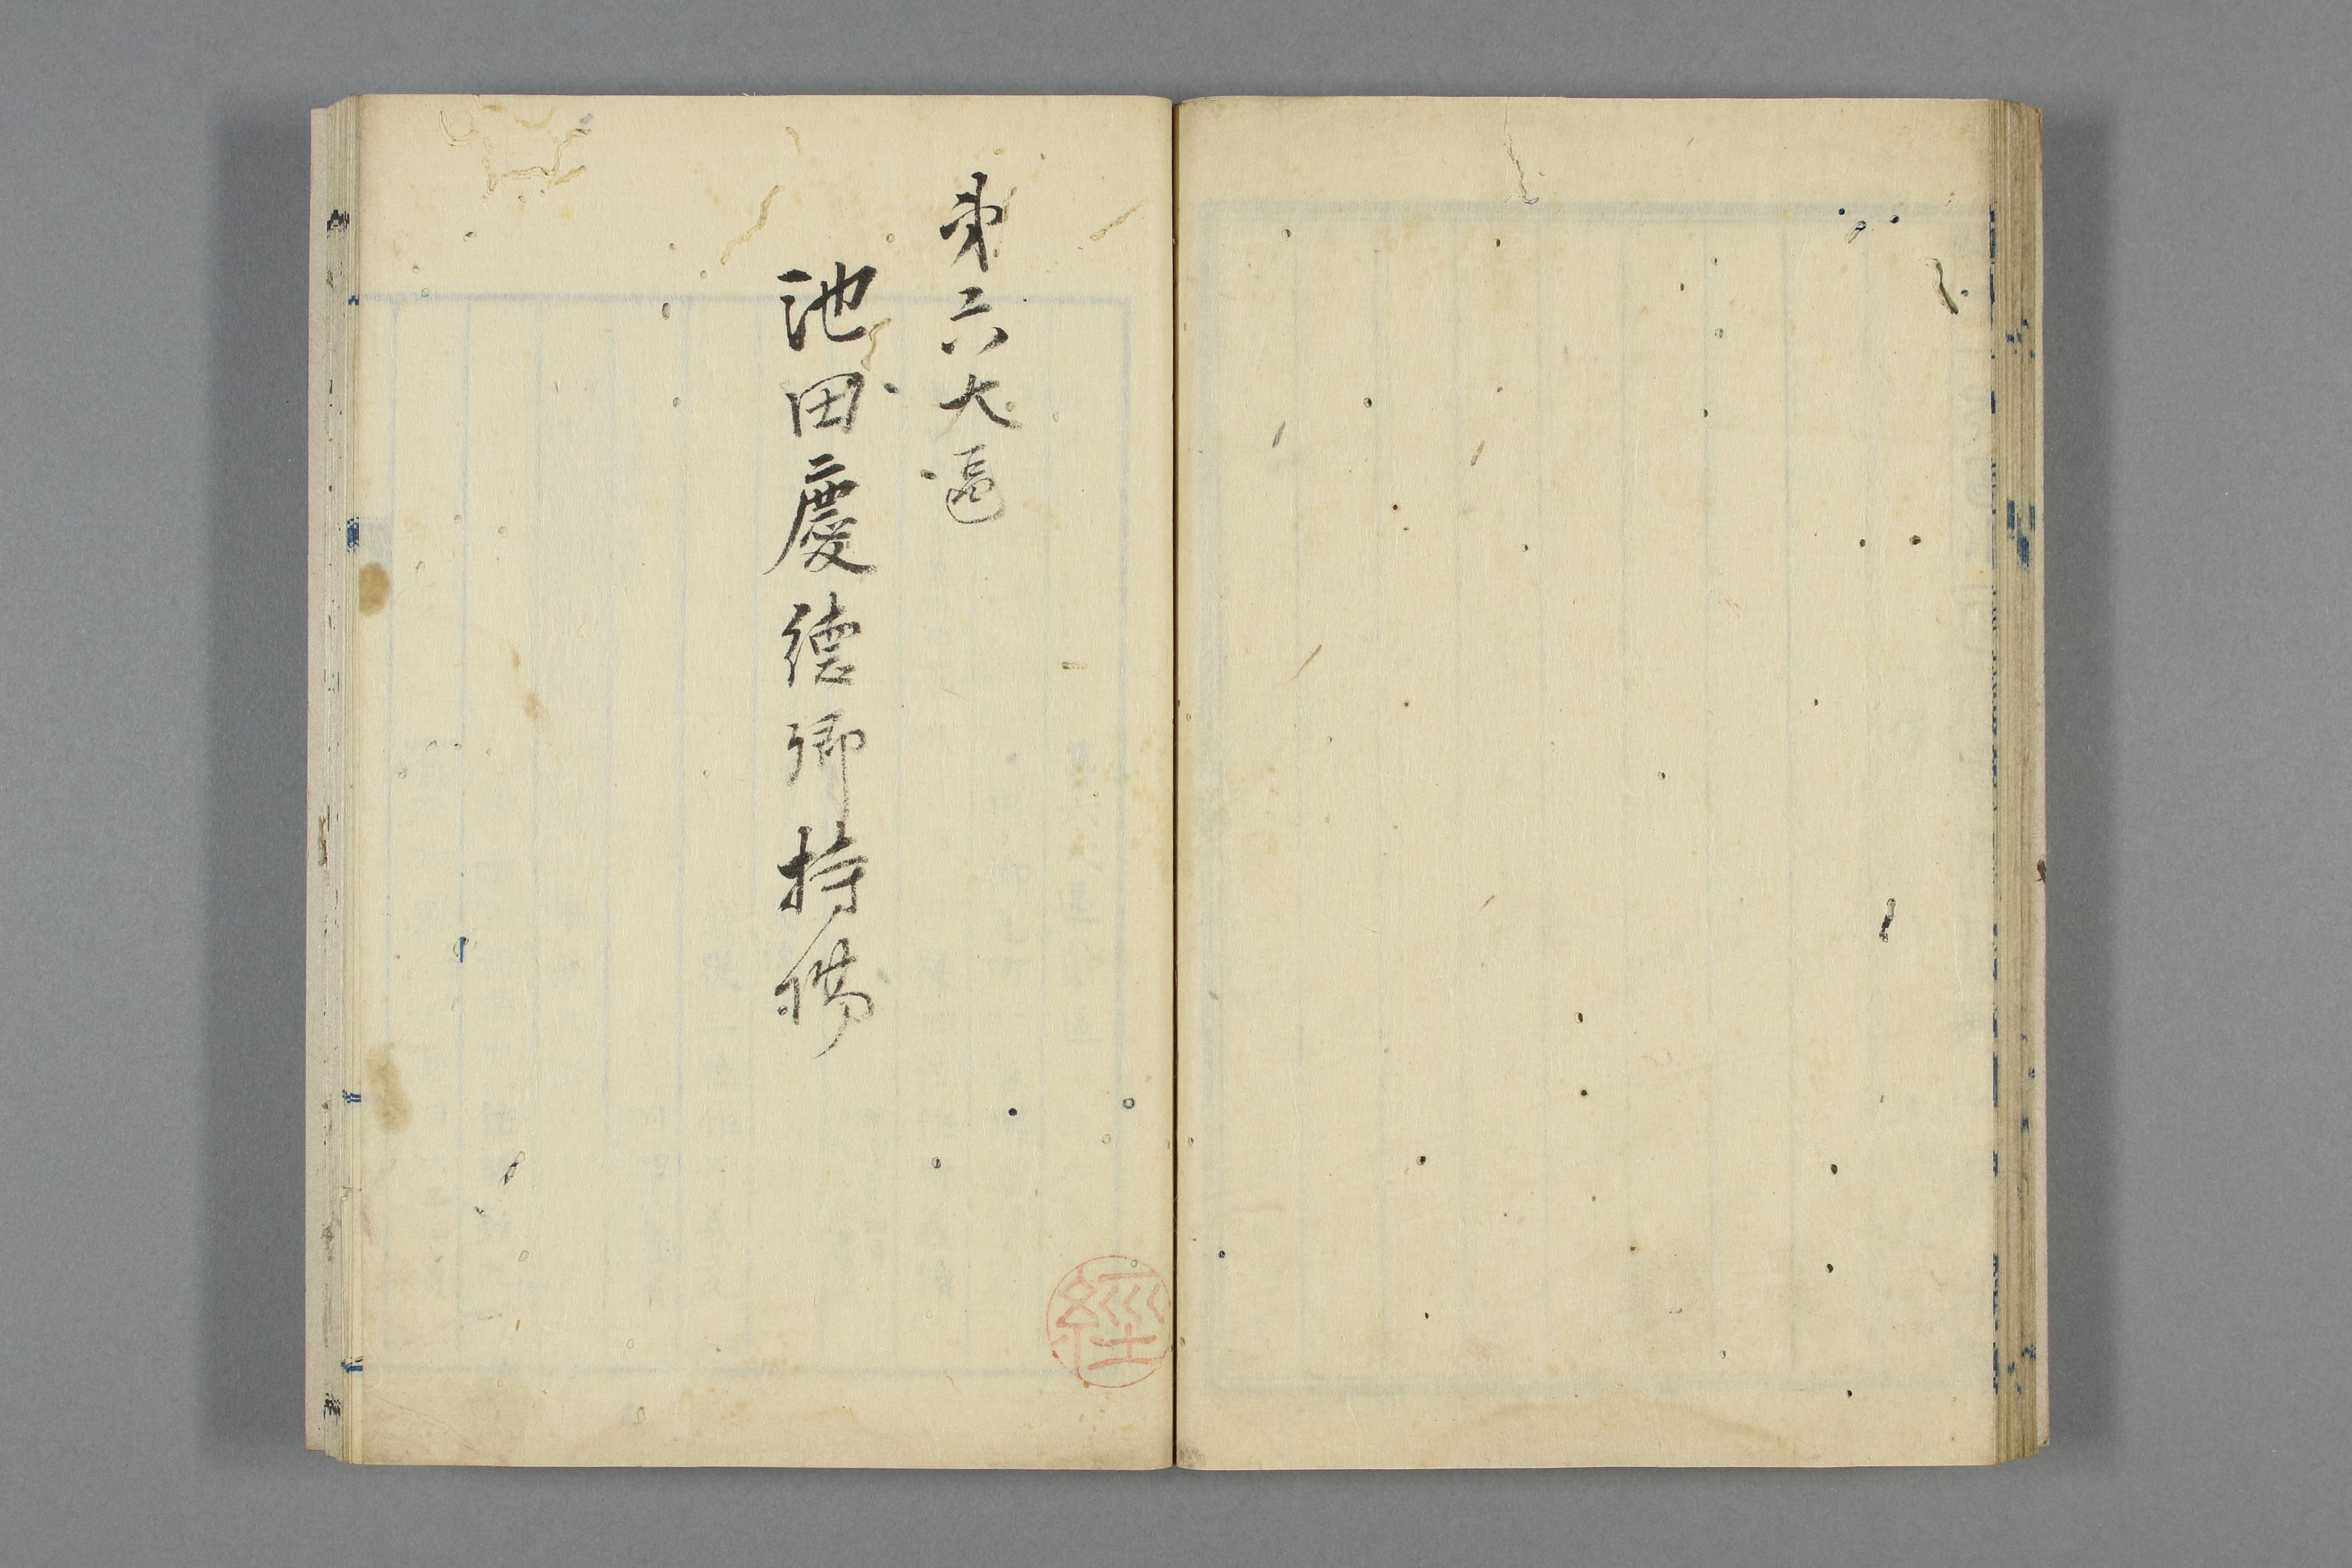 第六大區
池田慶德卿持場
經